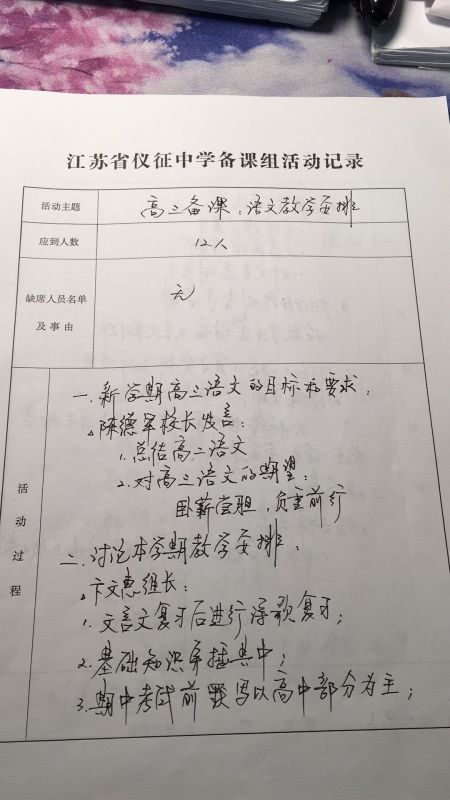 江苏省仪征中学备课组活动记录
活动主题 高三备课：语文教学安排
应到人数 12人
缺席人员名单
及事由 无
活动过程
一.新学期高三语文的目标和要求：
陈德军校长发言：
1.总结高二语文
2.对高三语文的期望：
卧薪尝胆，负重前行
二.讨论本学期教学安排：
卞文惠组长：
1.文言文复习后进行诗歌复习；
2.基础知识穿插其中；
3.期中考试前默写以高中部分为主；